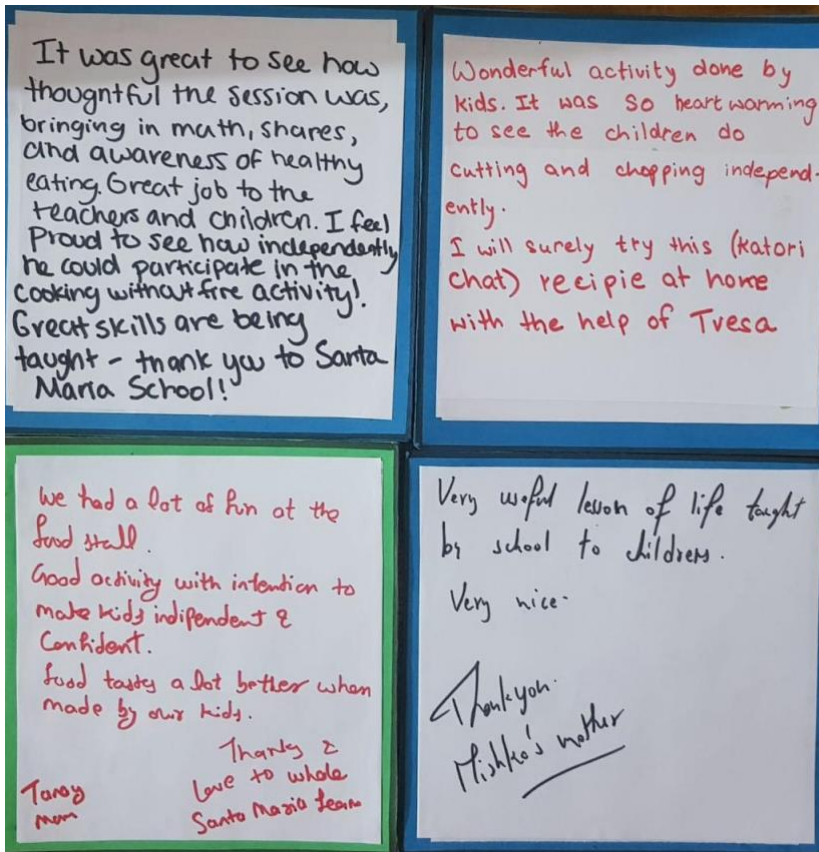 It was great to see how
thoughtful the session was,
bringing in math, shares,
and awareness of healthy
eating. Great job to the
teachers and children. I feel
Proud to see how independently
he could participate in the
cooking without fire activity!
Great skills are being
taught - thank you to Santa
Maria School!
Wonderful activity done by
kids. It was so heart warming
to see the children do
cutting and chopping independ-
ently.
I will surely try this (katori
chat) recipie at home
with the help of Tvesa
We had a lot of fun at the
food stall.
Good activity with intention to
make kids indipendent &
Confident.
food tasty a lot better when
made by our kids.
Thanks &
Love to whole
Santa Maria team
Tanay
mom
Very useful lesson of life taught
by school to childrens.
Very nice.
Thankyou.
Mishka's mother